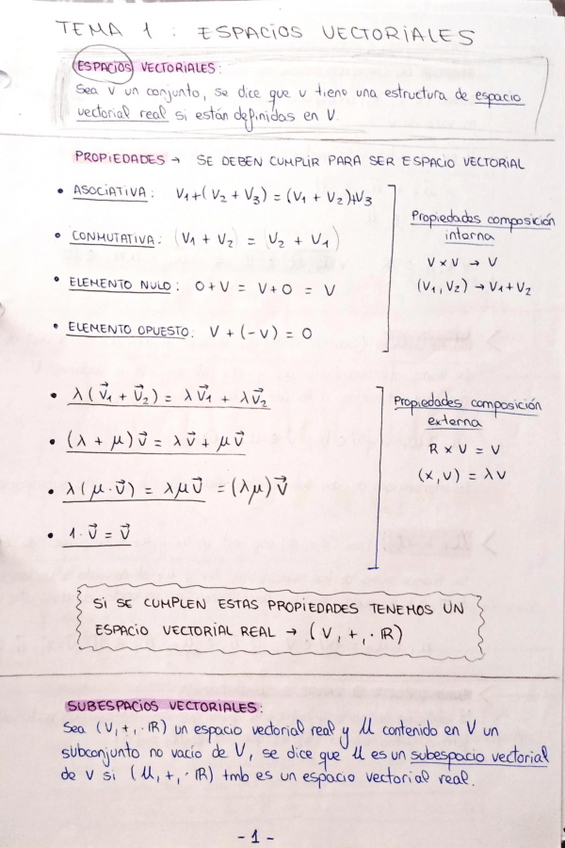 TEMA 1 : ESPACIOS VECTORIALES
ESPACIOS VECTORIALES:
Sea V un conjunto, se dice que V tiene una estructura de espacio
vectorial real si están definidas en V.
PROPIEDADES → SE DEBEN CUMPLIR PARA SER ESPACIO VECTORIAL
• ASOCIATIVA: V1+(V2+V3)=(V1+V2)+V3
• CONMUTATIVA: (V1+V2) = (V2+V1)
• ELEMENTO NULO: 0+V = V+0 = V
• ELEMENTO OPUESTO: V+(-V)=0
Propiedades composición
interna
V x V → V
(V1, V2) → V1+V2
• λ(v⃗1 + v⃗2) = λv⃗1 + λv⃗2
• (λ + μ)v⃗ = λv⃗ + μv⃗
• λ(μ·v⃗) = λμv⃗ = (λμ)v⃗
• 1·v⃗ = v⃗
Propiedades composición
externa
R x V = V
(x, v) = λv
SI SE CUMPLEN ESTAS PROPIEDADES TENEMOS UN
ESPACIO VECTORIAL REAL → (V, +, · ℝ)
SUBESPACIOS VECTORIALES:
Sea (V, +, · ℝ) un espacio vectorial real y U contenido en V un
subconjunto no vacío de V, se dice que U es un subespacio vectorial
de V si (U, +, · ℝ) tmb es un espacio vectorial real.
- 1 -